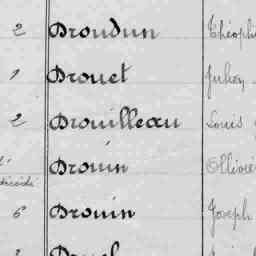 2 Droudun Théophi
1 Drouet Juhen
2 Drouilleau Louis
Drouin Ollivie
décédé
6 Drouin Joseph